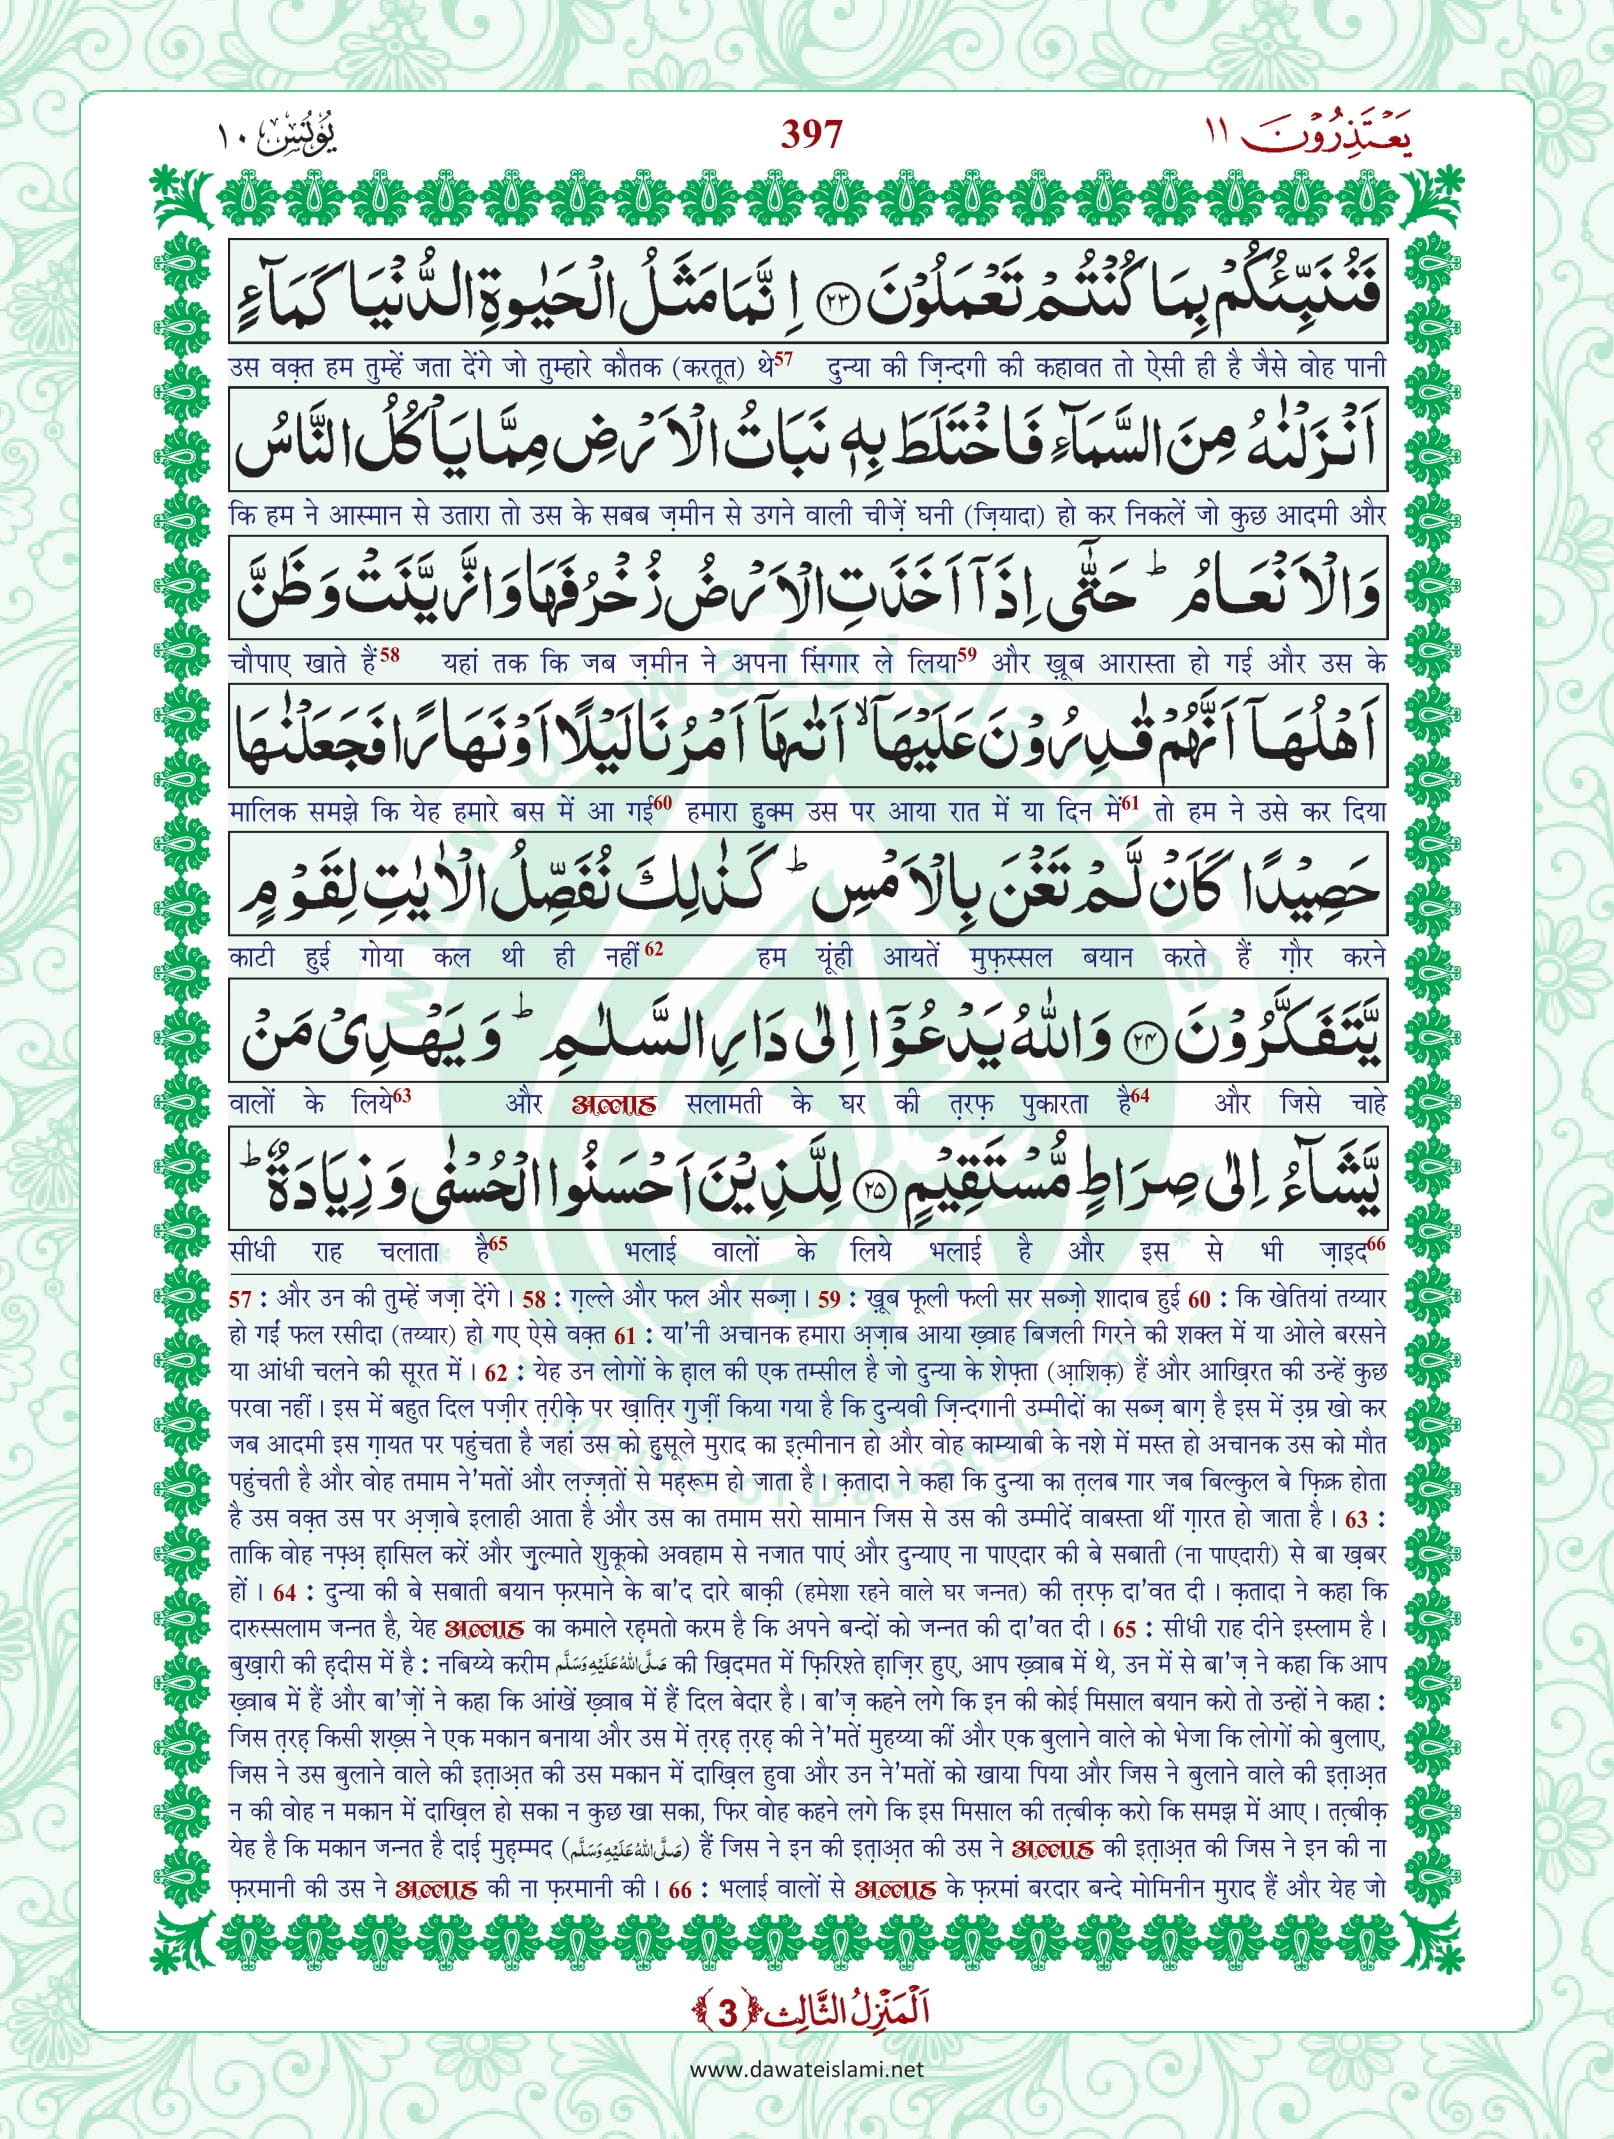 يَعْتَذِرُوْنَ ١١
397
يُوْنُس ١٠
فَنُنَبِّئُكُمْ بِمَا كُنْتُمْ تَعْمَلُوْنَ ﴿۲۳﴾ اِنَّمَا مَثَلُ الْحَيٰوةِ الدُّنْيَا كَمَآءٍ
उस वक़्त हम तुम्हें जता देंगे जो तुम्हारे कौतक (करतूत) थे57 दुन्या की ज़िन्दगी की कहावत तो ऐसी ही है जैसे वोह पानी
اَنْزَلْنٰهُ مِنَ السَّمَآءِ فَاخْتَلَطَ بِهٖ نَبَاتُ الْاَرْضِ مِمَّا يَاْكُلُ النَّاسُ
कि हम ने आस्मान से उतारा तो उस के सबब ज़मीन से उगने वाली चीज़ें घनी (ज़ियादा) हो कर निकलें जो कुछ आदमी और
وَالْاَنْعَامُ ؕ حَتّٰۤى اِذَاۤ اَخَذَتِ الْاَرْضُ زُخْرُفَهَا وَازَّيَّنَتْ وَظَنَّ
चौपाए खाते हैं58 यहां तक कि जब ज़मीन ने अपना सिंगार ले लिया59 और ख़ूब आरास्ता हो गई और उस के
اَهْلُهَاۤ اَنَّهُمْ قٰدِرُوْنَ عَلَيْهَاۤ ۙ اَتٰىهَاۤ اَمْرُنَا لَيْلًا اَوْ نَهَارًا فَجَعَلْنٰهَا
मालिक समझे कि येह हमारे बस में आ गई60 हमारा हुक्म उस पर आया रात में या दिन में61 तो हम ने उसे कर दिया
حَصِيْدًا كَاَنْ لَّمْ تَغْنَ بِالْاَمْسِ ؕ كَذٰلِكَ نُفَصِّلُ الْاٰيٰتِ لِقَوْمٍ
काटी हुई गोया कल थी ही नहीं62 हम यूंही आयतें मुफ़स्सल बयान करते हैं ग़ौर करने
يَّتَفَكَّرُوْنَ ﴿۲۴﴾ وَاللّٰهُ يَدْعُوْۤا اِلٰى دَارِ السَّلٰمِ ؕ وَيَهْدِيْ مَنْ
वालों के लिये63 और अल्लाह सलामती के घर की त़रफ़ पुकारता है64 और जिसे चाहे
يَّشَآءُ اِلٰى صِرَاطٍ مُّسْتَقِيْمٍ ﴿۲۵﴾ لِلَّذِيْنَ اَحْسَنُوا الْحُسْنٰى وَزِيَادَةٌ ؕ
सीधी राह चलाता है65 भलाई वालों के लिये भलाई है और इस से भी ज़ाइद66
57 : और उन की तुम्हें जज़ा देंगे। 58 : ग़ल्ले और फल और सब्ज़ा। 59 : ख़ूब फूली फली सर सब्ज़ो शादाब हुई 60 : कि खेतियां तय्यार
हो गईं फल रसीदा (तय्यार) हो गए ऐसे वक़्त 61 : या'नी अचानक हमारा अ़ज़ाब आया ख़्वाह बिजली गिरने की शक्ल में या ओले बरसने
या आंधी चलने की सूरत में। 62 : येह उन लोगों के ह़ाल की एक तम्सील है जो दुन्या के शेफ़्ता (आ़शिक़) हैं और आख़िरत की उन्हें कुछ
परवा नहीं। इस में बहुत दिल पज़ीर त़रीक़े पर ख़ात़िर गुज़ीं किया गया है कि दुन्यवी ज़िन्दगानी उम्मीदों का सब्ज़ बाग़ है इस में उ़म्र खो कर
जब आदमी इस ग़ायत पर पहुंचता है जहां उस को ह़ुसूले मुराद का इत़्मीनान हो और वोह काम्याबी के नशे में मस्त हो अचानक उस को मौत
पहुंचती है और वोह तमाम ने'मतों और लज़्ज़तों से मह़रूम हो जाता है। क़तादा ने कहा कि दुन्या का त़लब गार जब बिल्कुल बे फ़िक्र होता
है उस वक़्त उस पर अ़ज़ाबे इलाही आता है और उस का तमाम सरो सामान जिस से उस की उम्मीदें वाबस्ता थीं ग़ारत हो जाता है। 63 :
ताकि वोह नफ़्अ़ ह़ासिल करें और ज़ुल्माते शुकूको अवहाम से नजात पाएं और दुन्याए ना पाएदार की बे सबाती (ना पाएदारी) से बा ख़बर
हों। 64 : दुन्या की बे सबाती बयान फ़रमाने के बा'द दारे बाक़ी (हमेशा रहने वाले घर जन्नत) की त़रफ़ दा'वत दी। क़तादा ने कहा कि
दारुस्सलाम जन्नत है, येह अल्लाह का कमाले रह़मतो करम है कि अपने बन्दों को जन्नत की दा'वत दी। 65 : सीधी राह दीने इस्लाम है।
बुख़ारी की ह़दीस में है : नबिय्ये करीम صَلَّى اللهُ عَلَيْهِ وَسَلَّم की ख़िदमत में फ़िरिश्ते ह़ाज़िर हुए, आप ख़्वाब में थे, उन में से बा'ज़ ने कहा कि आप
ख़्वाब में हैं और बा'ज़ों ने कहा कि आंखें ख़्वाब में हैं दिल बेदार है। बा'ज़ कहने लगे कि इन की कोई मिसाल बयान करो तो उन्हों ने कहा :
जिस त़रह़ किसी शख़्स ने एक मकान बनाया और उस में त़रह़ त़रह़ की ने'मतें मुहय्या कीं और एक बुलाने वाले को भेजा कि लोगों को बुलाए,
जिस ने उस बुलाने वाले की इत़ाअ़त की उस मकान में दाख़िल हुवा और उन ने'मतों को खाया पिया और जिस ने बुलाने वाले की इत़ाअ़त
न की वोह न मकान में दाख़िल हो सका न कुछ खा सका, फिर वोह कहने लगे कि इस मिसाल की तत़्बीक़ करो कि समझ में आए। तत़्बीक़
येह है कि मकान जन्नत है दाई मुह़म्मद (صَلَّى اللهُ عَلَيْهِ وَسَلَّم) हैं जिस ने इन की इत़ाअ़त की उस ने अल्लाह की इत़ाअ़त की जिस ने इन की ना
फ़रमानी की उस ने अल्लाह की ना फ़रमानी की। 66 : भलाई वालों से अल्लाह के फ़रमां बरदार बन्दे मोमिनीन मुराद हैं और येह जो
اَلْمَنْزِلُ الثَّالِث ﴿3﴾
www.dawateislami.net